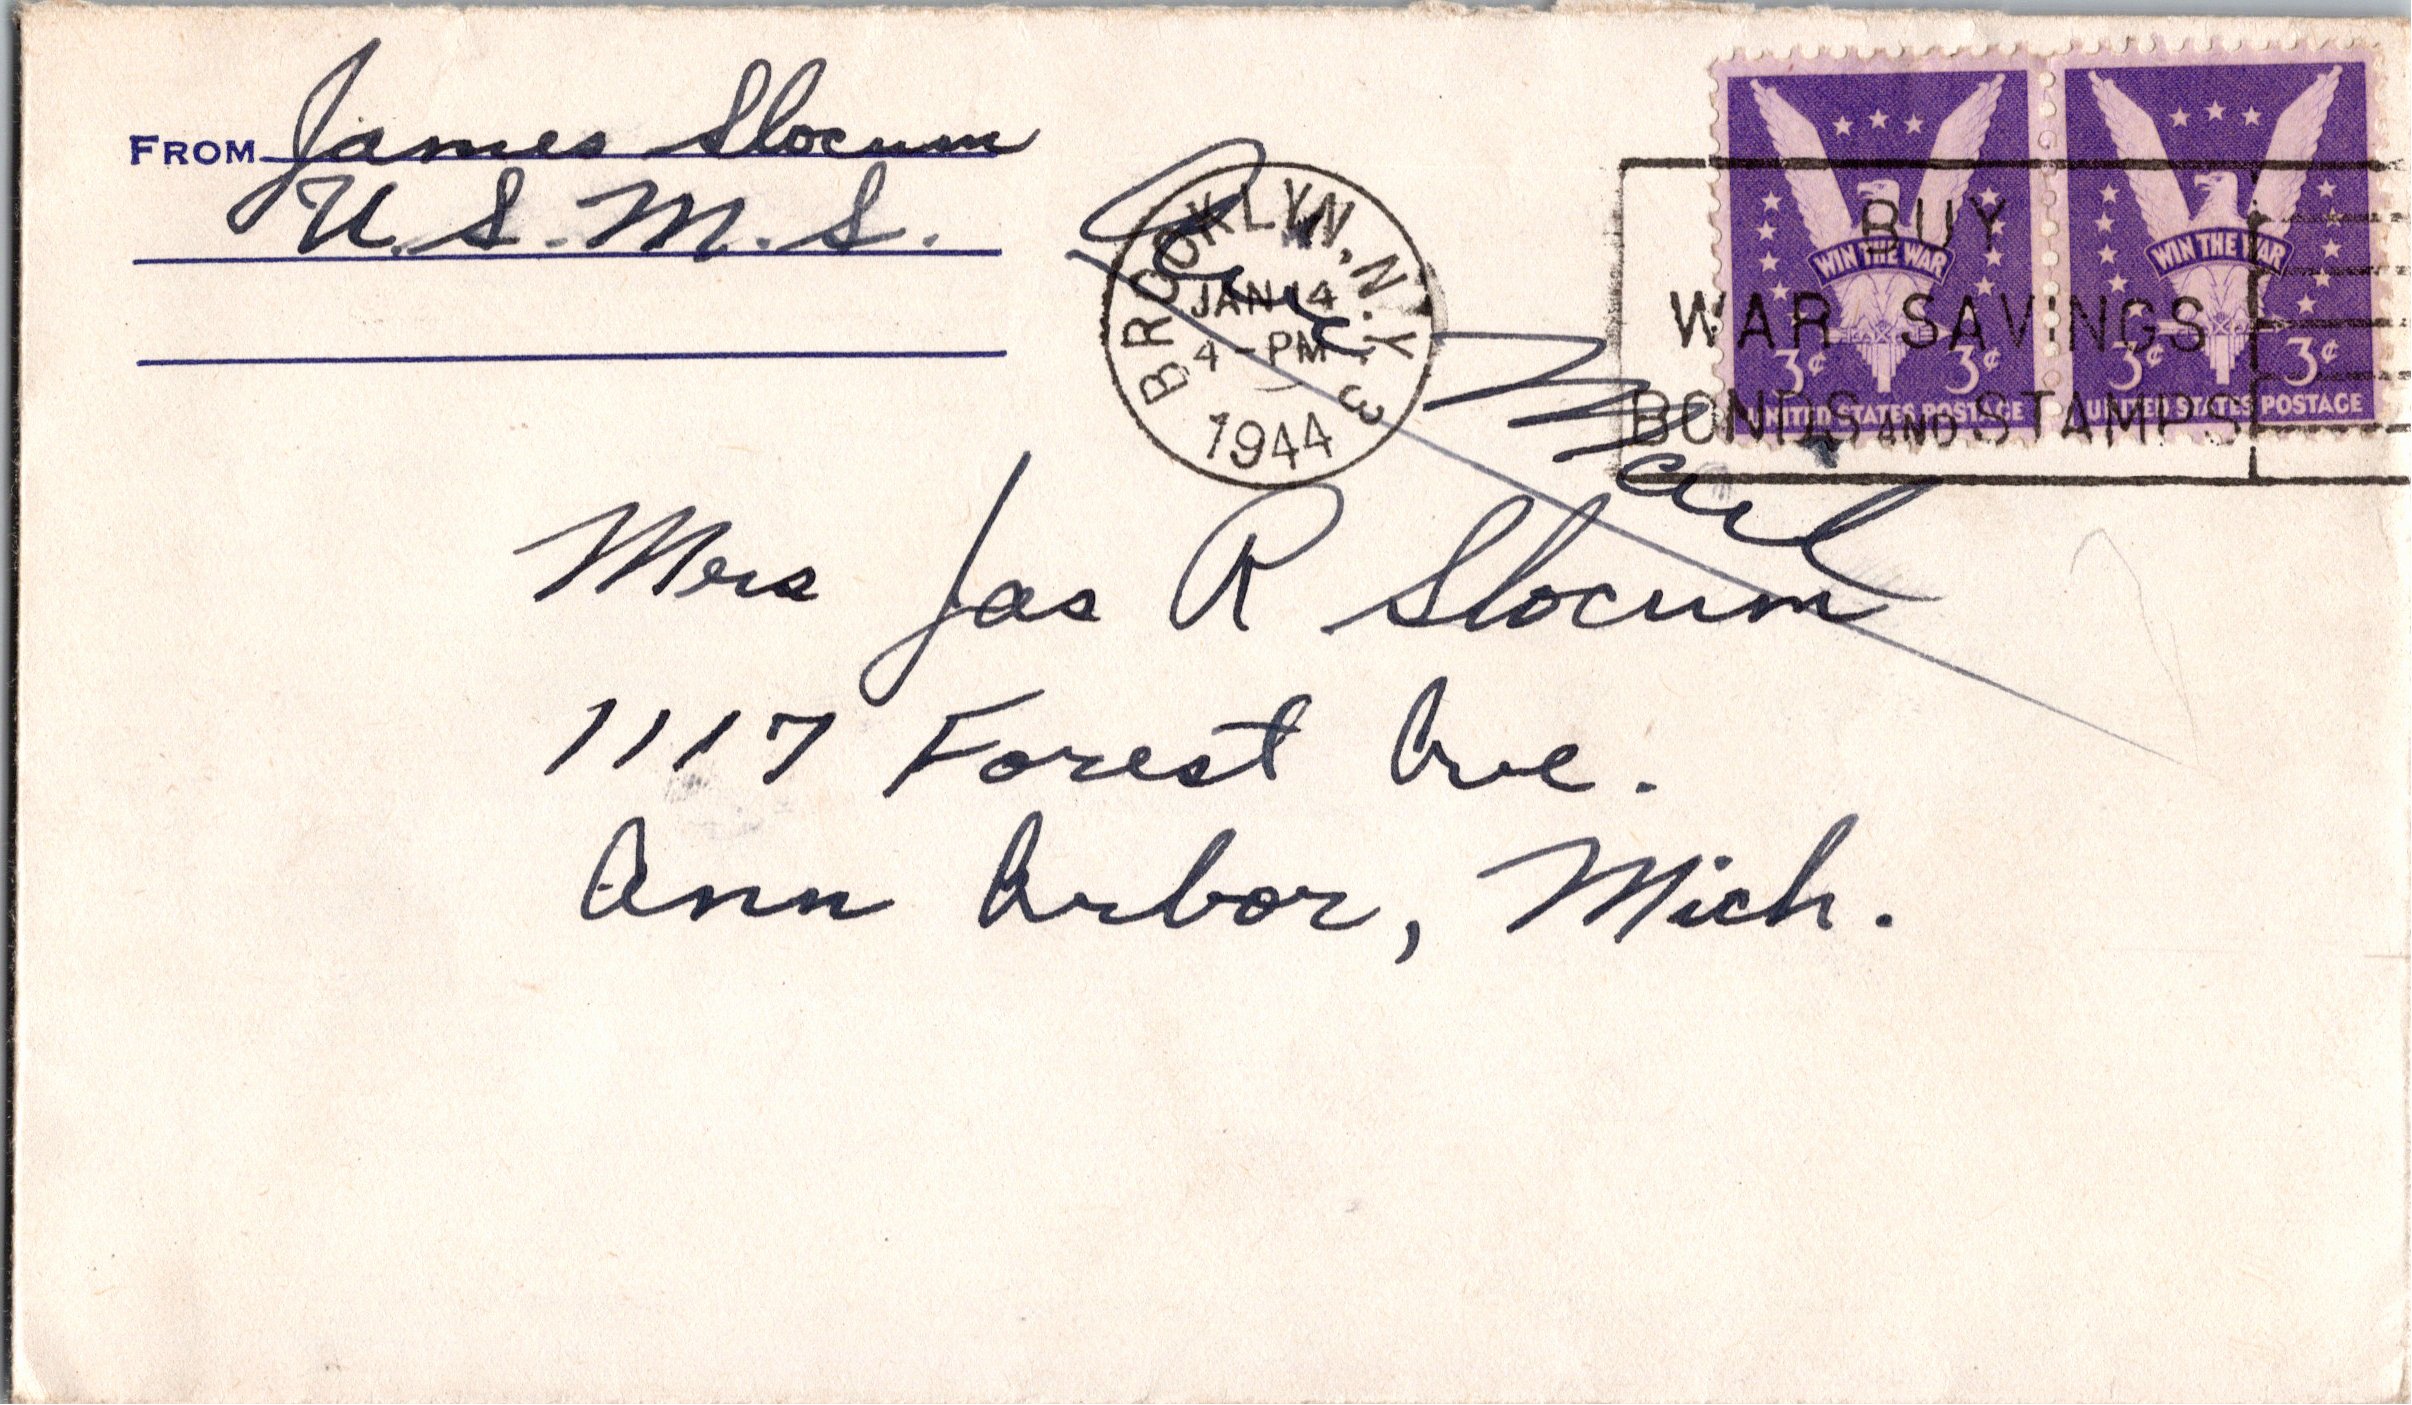 FROM James Slocum
U.S.M.S.
Air Mail
BROOKLYN, N.Y. 3
JAN 14
4-PM
1944
BUY
WAR SAVINGS
BONDS AND STAMPS
WIN THE WAR
3¢ 3¢
UNITED STATES POSTAGE
WIN THE WAR
3¢ 3¢
UNITED STATES POSTAGE
Mrs Jas R Slocum
1117 Forest Ave.
Ann Arbor, Mich.